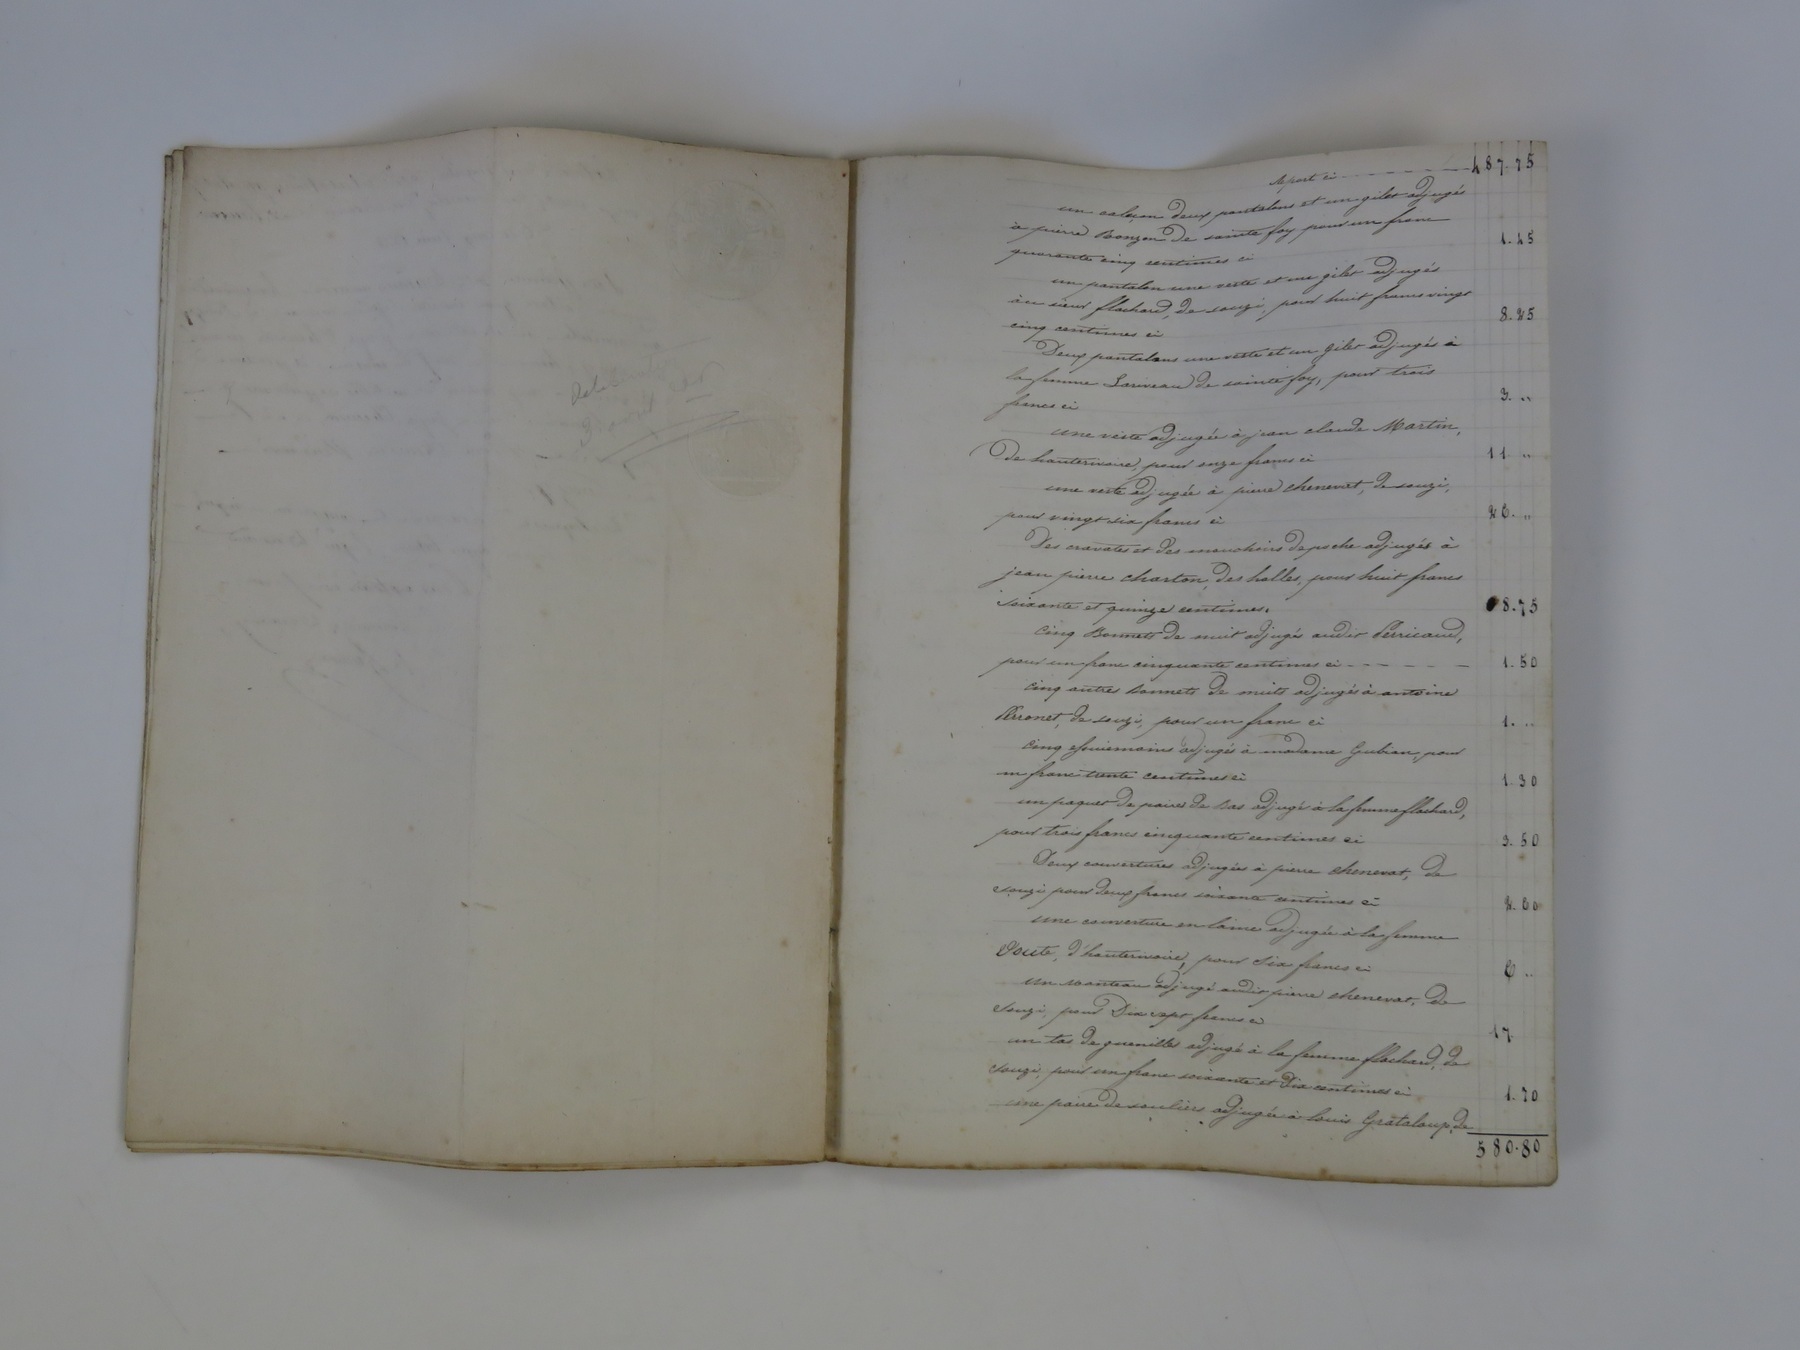 Report ci 487.75
un caleçon deux pantalons et un gilet adjugés
à pierre Bonzon de sainte foy pour un franc
quarante cinq centimes ci 1.45
un pantalon une veste et un gilet adjugés
au sieur flachard, de souzi, pour huit francs vingt
cinq centimes ci 8.25
Deux pantalons une veste et un gilet adjugés à
la femme de sainte foy, pour trois
francs ci 3. "
une veste adjugée à jean claude Martin,
De hauterivoire, pour onze francs ci 11 "
une veste adjugée à pierre chenevat, de souzi,
pour vingt six francs ci 26. "
Des cravates et des mouchoirs de poche adjugés à
jean pierre charton, des halles, pour huit francs
soixante et quinze centimes. 8.75
Cinq Bonnets de nuit adjugés audit Perricaud,
pour un franc cinquante centimes ci 1.50
Cinq autres bonnets de nuits adjugés à antoine
Perronet, de souzi, pour un franc ci 1. "
Cinq essuiemains adjugés à madame Gubian, pour
un franc trente centimes ci 1.30
un paquet de paires de bas adjugé à la femme flachard,
pour trois francs cinquante centimes ci 3.50
Deux couvertures adjugées à pierre chenevat, de
souzi pour deux francs soixante centimes ci 2.60
une couverture en laine adjugée à la femme
d'hauterivoire, pour six francs ci 6 "
un manteau adjugé audit pierre chenevat, de
souzi, pour Dix sept francs ci 17
un tas de guenilles adjugé à la femme flachard, de
souzi, pour un franc soixante et dix centimes ci 1.70
une paire de souliers adjugée à louis Grataloup, de
580.80